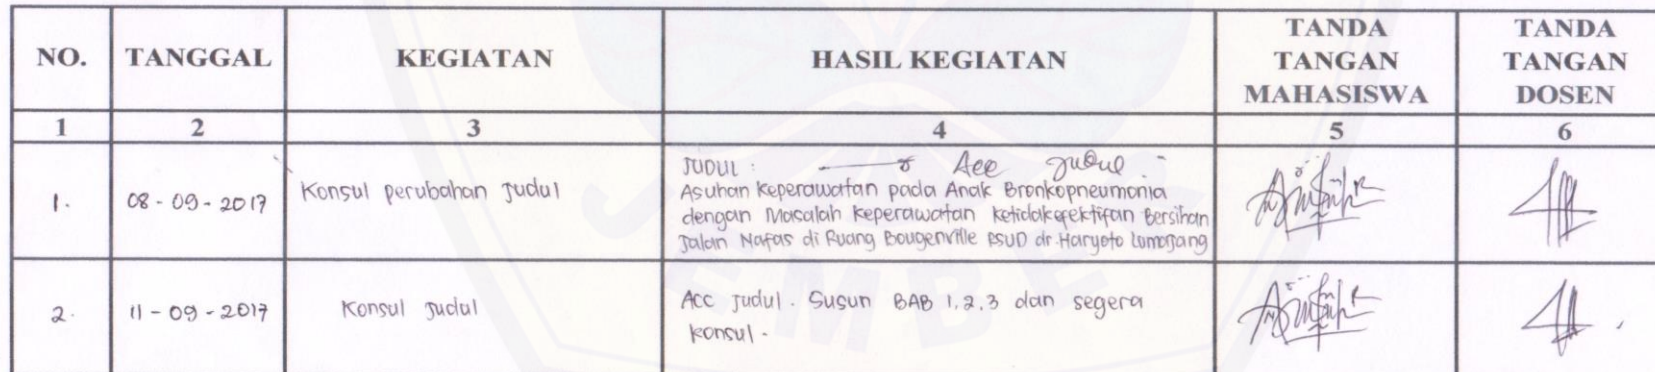 NO. TANGGAL KEGIATAN HASIL KEGIATAN TANDA TANGAN MAHASISWA TANDA TANGAN DOSEN
1 2 3 4 5 6
1. 08-09-2017 Konsul perubahan Judul
JUDUL : Acc Judul
Asuhan Keperawatan pada Anak Bronkopneumonia
dengan Masalah Keperawatan Ketidakefektifan Bersihan
Jalan Nafas di Ruang Bougenville RSUD dr. Haryoto Lumajang
2. 11-09-2017 Konsul Judul
ACC Judul. Susun BAB 1, 2, 3 dan segera
konsul.
JEMBER